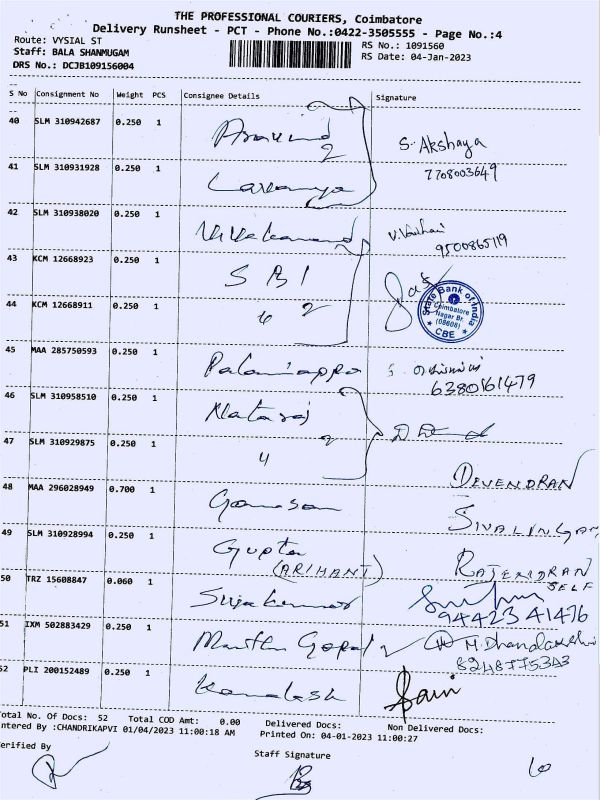 THE PROFESSIONAL COURIERS, Coimbatore
Delivery Runsheet - PCT - Phone No.:0422-3505555 - Page No.:4
Route: VYSIAL ST
RS No.: 1091560
Staff: BALA SHANMUGAM
RS Date: 04-Jan-2023
DRS No.: DCJB109156004
S No Consignment No Weight PCS Consignee Details Signature
40 SLM 310942687 0.250 1 Aravind S. Akshaya
2 7708003649
41 SLM 310931928 0.250 1 Lavanya
42 SLM 310938020 0.250 1 Vivekanand
9500865119
43 KCM 12668923 0.250 1 SBI
State Bank of India
Coimbatore
Nagar Br.
(08608)
CBE
44 KCM 12668911 0.250 1 2
45 MAA 285750593 0.250 1 Palaniappa
6380161479
46 SLM 310958510 0.250 1 Nataraj
47 SLM 310929875 0.250 1 DEVENDRAN
48 MAA 296028949 0.700 1 Ganesan SIVALINGAM
49 SLM 310928994 0.250 1 Gupta RAJENDRAN
(ARIHANT) SELF
50 TRZ 15608847 0.060 1 Sivakumar
9442341476
51 IXM 502883429 0.250 1 Gopal M. Dhandalakshmi
8248775343
52 PLI 200152489 0.250 1 Kamalesh Sam
Total No. Of Docs: 52 Total COD Amt: 0.00 Delivered Docs: Non Delivered Docs:
ntered By :CHANDRIKAPVI 01/04/2023 11:00:18 AM Printed On: 04-01-2023 11:00:27
erified By
Staff Signature